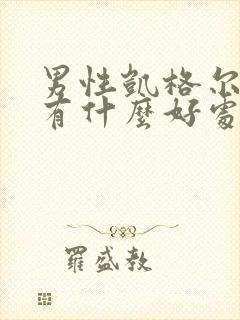 男性凱格尔
有什麼好處
羅盛教